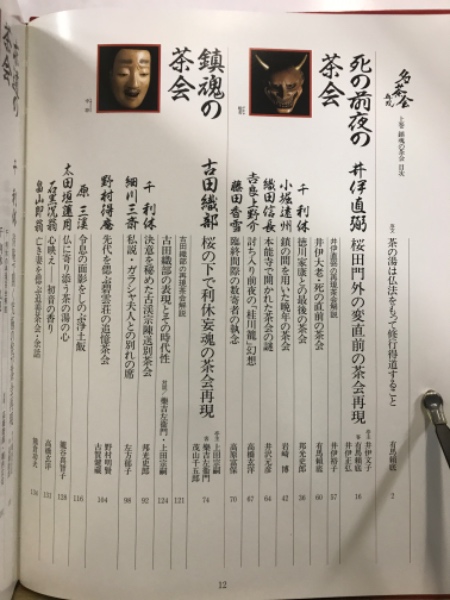 名茶会
上巻 鎮魂の茶会 目次
序文 茶の湯は仏法をもって修行得道すること 有馬頼底 2
死の前夜の茶会
井伊直弼 桜田門外の変直前の茶会再現 16
井伊文子
有馬頼底
井伊正弘
井伊直弼の再現茶会解説 井伊裕子 57
井伊大老・死の直前の茶会 有馬頼底 60
千利休 徳川家康との最後の茶会 邦光史郎 36
小堀遠州 鎖の間を用いた晩年の茶会 岩崎 博 42
織田信長 本能寺で開かれた茶会の謎 井沢元彦 64
吉良上野介 討ち入り前夜の「桂川籠」幻想 高橋玄洋 67
藤田香雪 臨終間際の数寄者の執念 高原富保 70
鎮魂の茶会
古田織部 桜の下で利休妄魂の茶会再現 74
上田宗嗣
樂吉左衞門
茂山千五郎
古田織部の再現茶会解説 121
古田織部の表現とその時代性 樂吉左衞門・上田宗嗣 124
千利休 決意を秘めた古渓宗陳送別茶会 邦光史郎 92
細川三斎 私説・ガラシャ夫人との別れの席 左方郁子 98
野村得庵 先代を偲ぶ碧雲荘の追憶茶会 野村明賢 104
古賀健蔵
原三渓 令息の面影をしのぶ浄土飯 116
太田垣蓮月 仏に寄り添う茶の湯の心 128
石黒况翁 心映え 初音の香り 高橋玄洋 131
亡き妻を偲ぶ追善茶会・余話 熊倉功夫 134
12